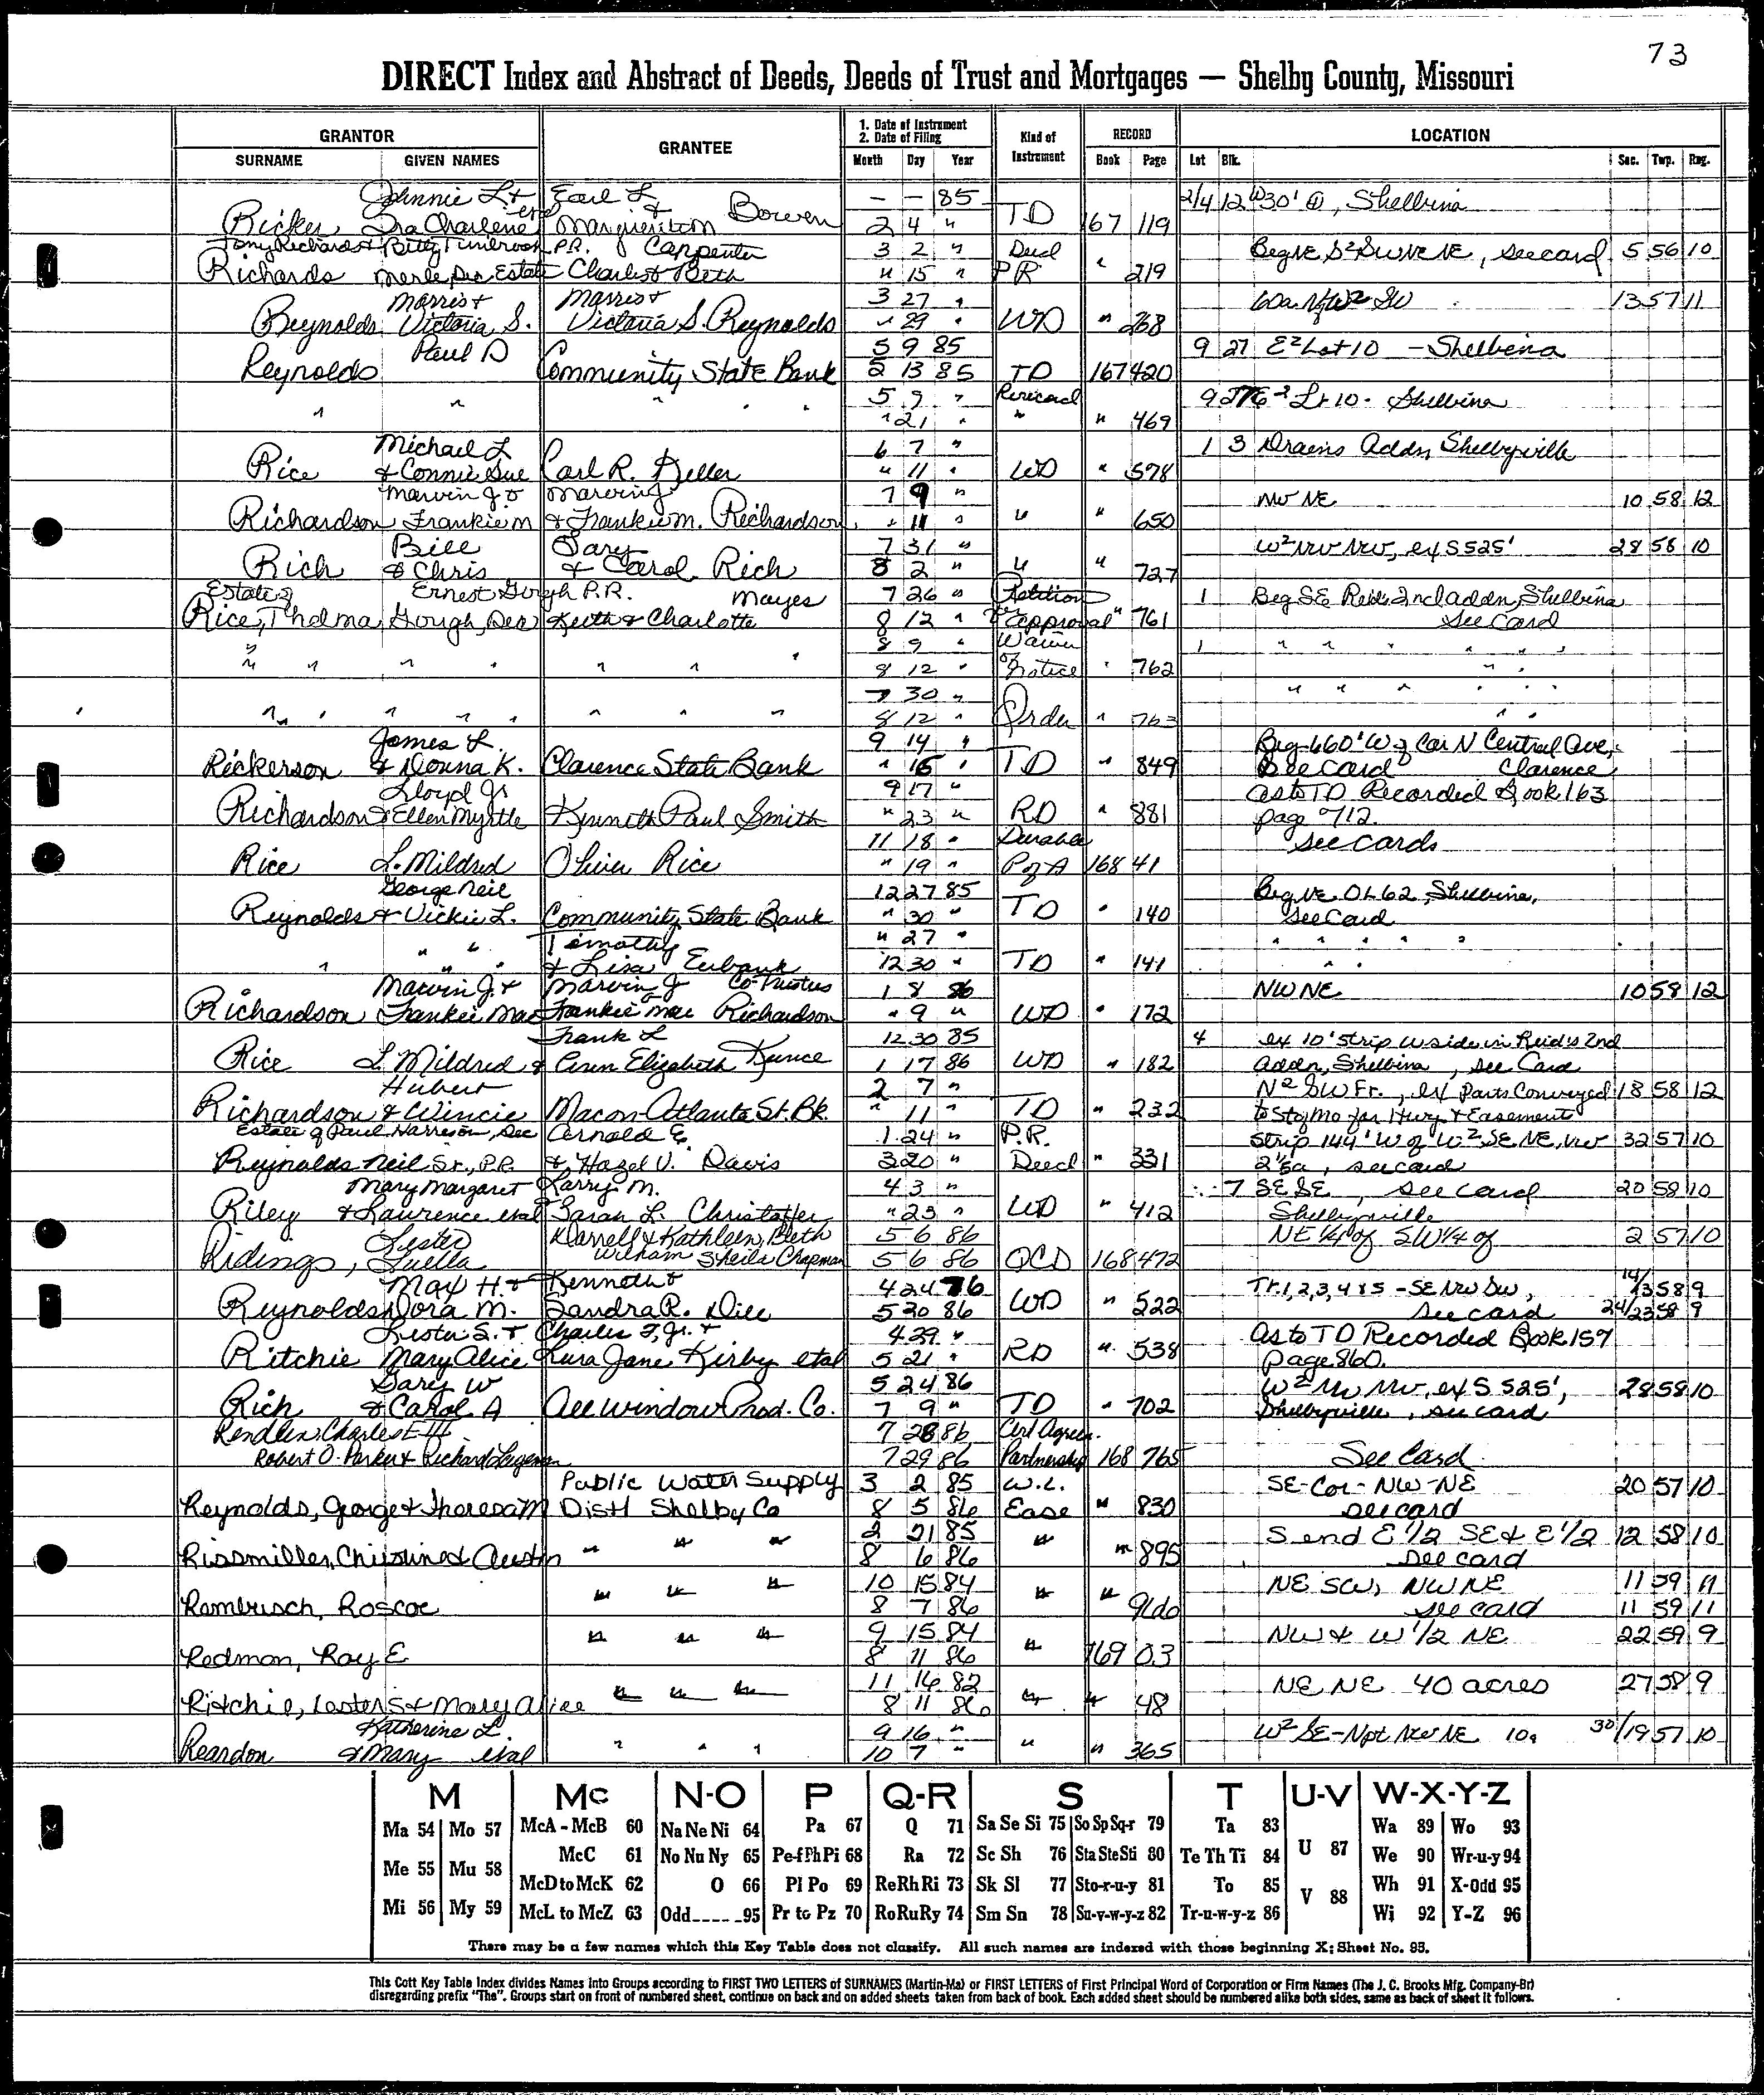 73
DIRECT Index and Abstract of Deeds, Deeds of Trust and Mortgages — Shelby County, Missouri
GRANTOR GRANTEE 1. Date of Instrument 2. Date of Filing Kind of Instrument RECORD LOCATION
SURNAME GIVEN NAMES Month Day Year Book Page Lot Blk. Sec. Twp. Rng.
Johnnie L & Earl L & — — 85
Ricker Charlene Bowen 2 4 " TD 167 119 Shelbina
Tony Richards & Betty P.R. Carpenter 3 2 " Deed Beg NE S² SW NE NE, see card 5 56 10
Richards Merle Dec Estate Charles & Beth " 15 " PR " 219
Morris & Morris & 3 27 " SW 13 57 11
Reynolds Victoria S. Victoria S. Reynolds " 29 " WD " 268
Paul D 5 9 85 9 27 E² Lot 10 - Shelbina
Reynolds Community State Bank 5 13 85 TD 167 420
" " " " " 5 9 " Rerecord Lt 10 - Shelbina
" 21 " " " 469
Michael L 6 7 " 1 3 Drains Addn Shelbyville
Rice & Connie Sue Carl R. Keller " 11 " WD " 578
Marvin J & Marvin J 7 9 " NW NE 10 58 12
Richardson Frankie M & Frankie M. Richardson " 11 " " " 650
Bill Gary 7 31 " W² NW NW, ex S 525' 28 58 10
Rich & Chris & Carol Rich 8 2 " " " 727
Estate of Ernest Gough P.R. Mayes 7 26 " Petition 1 Beg SE Reids 2nd addn, Shelbina
Rice, Thelma Gough, Dec Keith & Charlotte 8 12 " for approval " 761 See Card
8 9 " Waiver 1 " " " " "
" " " " " " " 8 12 " of Notice " 762 " "
7 30 " " " " " "
" " " " " " " 8 12 " Order " 763 " "
James L. 9 14 " Beg 660' W of Cor N Central Ave,
Rickerson & Donna K. Clarence State Bank " 16 " TD " 849 See Card Clarence
Lloyd Jr 9 17 " As to TD Recorded Book 163
Richardson & Ellen Myrtle Kenneth Paul Smith " 23 " RD " 881 page 712.
11 18 " Durable See cards
Rice L. Mildred Oliver Rice " 19 " P of A 168 41
George Neil 12 27 85 Beg NE OL 62, Shelbina,
Reynolds & Vickie L. Community State Bank " 30 " TD " 140 See Card
" " Timothy " 27 " " " " " "
" " " & Lisa Eubank 12 30 " TD " 141 " "
Marvin J. & Marvin J Co-Trustees 1 8 86 NW NE 10 58 12
Richardson Frankie Mae Frankie Mae Richardson " 9 " WD " 172
Frank L 12 30 85 4 ex 10' strip W side in Reid's 2nd
Rice L Mildred & Ann Elizabeth Kunce 1 17 86 WD " 182 Addn, Shelbina, See Card
Hubert 2 7 " N² SW Fr., ex Parts Conveyed 18 58 12
Richardson & Wincie Macon-Atlanta St. Bk. " 11 " TD " 232 to St of Mo for Hwy & Easements
Estate of Paul Harrison, Dec Arnold E. 1 24 " P.R. Strip 144' W of W² SE NE NW 32 57 10
Reynolds Neil Sr., P.R. & Hazel V. Davis 3 20 " Deed " 331 see card
Mary Margaret Larry M. 4 3 " 7 SE SE, see card 20 58 10
Riley & Laurence etal Sarah L. Christoffer " 23 " WD " 412 Shelbyville
Lester Darrell & Kathleen, Beth 5 6 86 NE ¼ of SW ¼ of 2 57 10
Ridings, Luella William Sheila Chapman 5 6 86 QCD 168 472
Max H. & Kenneth & 4 24 76 Tr. 1, 2, 3, 4 & 5 - SE NW SW, 14/13 58 9
Reynolds Dora M. Sandra R. Dill 5 20 86 WD " 522 See card 24/23 58 9
Lester S. & Charles F, Jr. & 4 29 " As to TD Recorded Book 157
Ritchie Mary Alice Lura Jane Kirby etal 5 21 " RD " 538 page 860.
Gary W 5 24 86 W² NW NW, ex S 525', 28 58 10
Rich & Carol A All Window Prod. Co. 7 9 " TD " 702 Shelbyville, see card
Rendlen, Charles E III 7 28 86 Art Agreem.
Robert O. Parker & Richard 7 29 86 Partnership 168 765 See Card
Public Water Supply 3 2 85 W.L. SE-Cor-NW-NE 20 57 10
Reynolds, George & Theresa M Dist 1 Shelby Co 8 5 86 Ease " 830 see card
" " " 2 21 85 " S end E 1/2 SE & E 1/2 12 58 10
Rissmiller, Christine & Austin 8 6 86 " 895 see card
" " " 10 15 84 NE SW, NW NE 11 59 11
Rambusch, Roscoe 8 7 86 " " 960 see card 11 59 11
" " " 9 15 84 NW & W 1/2 NE 22 59 9
Redman, Ray E 8 11 86 " 169 03
" " " 11 16 82 NE NE 40 acres 27 58 9
Ritchie, Lester S & Mary Alice 8 11 86 " " 48
Katherine L. 9 16 " W² SE - Npt NW NE 10a 30/19 57 10
Reardon & Mary etal " " " 10 7 " " " 365
M Mc N-O P Q-R S T U-V W-X-Y-Z
Ma 54 Mo 57 McA - McB 60 Na Ne Ni 64 Pa 67 Q 71 Sa Se Si 75 So Sp Sq-r 79 Ta 83 U 87 Wa 89 Wo 93
Me 55 Mu 58 McC 61 No Nu Ny 65 Pe-f Ph Pi 68 Ra 72 Sc Sh 76 Sta Ste Sti 80 Te Th Ti 84 We 90 Wr-u-y 94
McD to McK 62 O 66 Pl Po 69 Re Rh Ri 73 Sk Sl 77 Sto-r-u-y 81 To 85 V 88 Wh 91 X-Odd 95
Mi 56 My 59 McL to McZ 63 Odd 95 Pr to Pz 70 Ro Ru Ry 74 Sm Sn 78 Su-v-w-y-z 82 Tr-u-w-y-z 86 Wi 92 Y-Z 96
There may be a few names which this Key Table does not classify. All such names are indexed with those beginning X; Sheet No. 95.
This Cott Key Table Index divides Names into Groups according to FIRST TWO LETTERS of SURNAMES (Martin-Ma) or FIRST LETTERS of First Principal Word of Corporation or Firm Names (The J. C. Brooks Mfg. Company-Br)
disregarding prefix "The". Groups start on front of numbered sheet, continue on back and on added sheets taken from back of book. Each added sheet should be numbered alike both sides, same as back of sheet it follows.